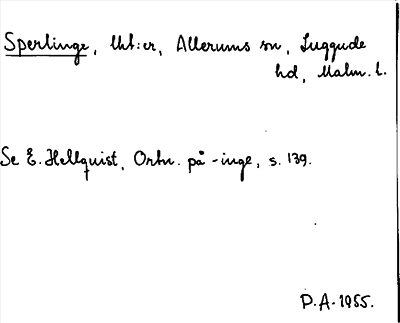 Sperlinge, lht:er, Allerums sn, Luggude
hd, Malm. l.
Se E. Hellquist, Ortn. på -inge, s. 139.
P.A. 1955.